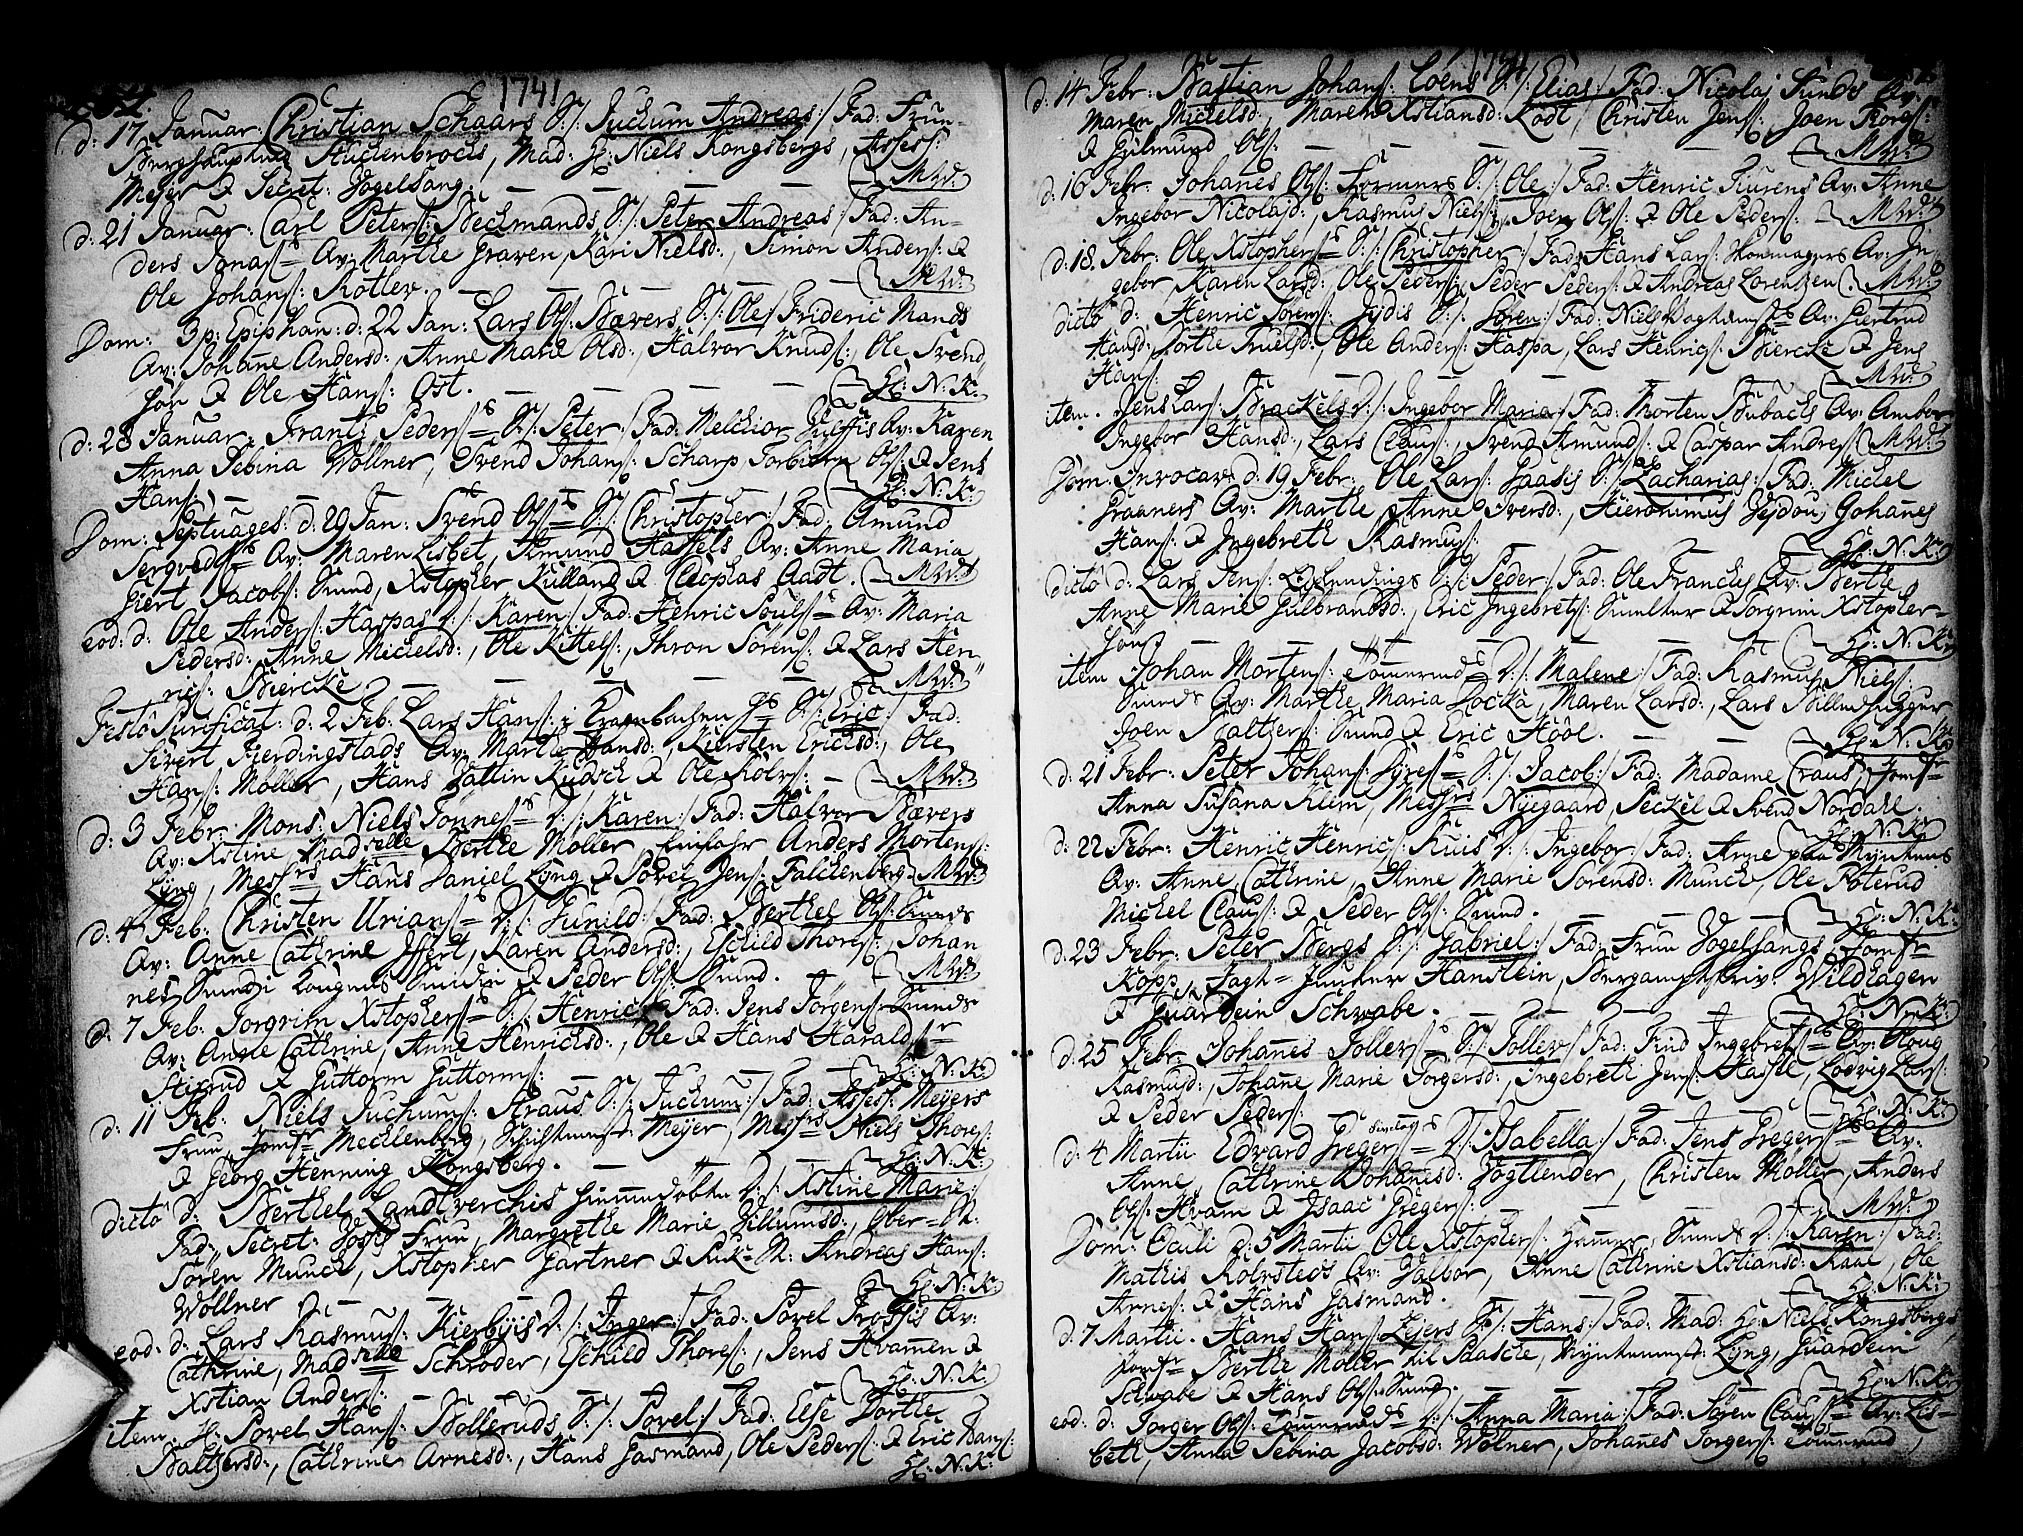 1741
d: 17 Januar: Christian Schaars S:/: Juchum Andreas:/ Fad: Frun
Berghauptmd Stuckenbrocks, Mad: Hr: Niels Kongsbergs, Assess:
Meyer & Secret: Vogelsang. — — — — Mkd:
d: 21 Januar: Carl Peters: Beckmands S:/: Peter Andreas / Fad: An=
ders Jonas= Av: Marthe Graven, Kari Nielsd:, Simon Anders: &
Ole Johans: Kotlev. — — — — Mkd:
Dom: 3 p: Epiphan: d: 22 Jan: Lars Ols: Bævers S:/: Ole / Frideric Mands
Av: Johane Andersd:, Anne Marie Olsd:, Halvor Knuds:, Ole Svend
sön & Ole Hans: Ost. — — — Hr: N: K:
d: 28 Januar: Frants Peders= S:/: Peter:/ Fad: Melchior Av: Karen
Anna Sebina Wollner, Svend Johans: Scharp, Torbiörn Ols: & Jens
Hans: — — — — Hr: N: K:
Dom: Septuages: d: 29 Jan: Svend Ols= S:/: Christopher:/ Fad: Amund
Av: Maren Lisbet, Amund Hassels Av: Anne Maria
Siert Jacobs: Smed, Xstopher Kulland & Cleophas Aadt. — Mkd:
eod: d: Ole Anders: Haspas D:/: Karen:/ Fad: Henric Pouls= Av: Maria
Pedersd: Anne Michelsd:, Ole Kittels:, Thron Sörens: & Lars Hen
rics: Biercke. — — — Mkd:
Festo Purificat: d: 2 Feb: Lars Hans: i S:/: Eric:/ Fad:
Sivert Fierdingstads Av: Marthe Hansd:, Kiersten Ericksd:, Ole
Hans: Moller, Hans Gallin & Ole Rölvs: — Mkd:
d: 3 Febr: Mons: Niels Tonnes= D:/: Karen:/ Fad: Halvor Bævers
Av: Xstine, Madselle Berthe Moller, Anders Mortens:
Lyng, Messrs Hans Daniel Lyng & Povel Jens: Falckenberg. Mkd:
d: 4 Feb: Christen Urians= D:/: Gunild:/ Fad: Berthel Ols: Smeds
Av: Anne Cathrine, Karen Andersd:, Eschild Thores:, Johan
nes Smed i & Peder Ols: Smed. — Mkd:
d: 7 Feb: Torgrim Xstophers= S:/: Henric:/ Fad: Jens Jörgens: Smeds
Av: Anne Cathrine, Anne Henricksd:, Ole & Hans Haralds=
Stixrud & Guttorm Guttorms: — — Hr: N: K:
d: 11 Feb: Niels Juchums: Straus S:/: Juchum:/ Fad: Assess: Meyers
Frun, Jomfr Mecklenberg, Meyer, Messrs Niels Thores:
& Georg Henning Kongsberg. — — Hr: N: K:
dicto d: Berthel Landtverchis D:/: Xstine Marie:/
Fad: Secret: Frun, Margrethe Marie Willumsd:, Ober= St:
Sören Munck, Xstopher Gartner & St: Andreas Hans:
Wöllner — — — Hr: N: K:
eod: d: Lars Rasmus: Kierbyis D:/: Inger:/ Fad: Povel Av:
Cathrine, Madselle Schröder, Eschild Thores:, Jens Kvamen &
Xstian Anders: — — — Hr: N: K:
item: H: Povel Hans: Bolleruds S:/: Povel:/ Fad: Else Dorthe
Baltzersd:, Cathrine Arnesd:, Hans Gasmand, Ole Peders: & Eric Hans:
Hr: N: K:
1741
d: 14 Febr: Bastian Johans: Coens S:/: Elias:/ Fad: Nicolai Av:
Maren Michelsd:, Maren Xstiansd: Lodt, Christen Jens:, Joen
& Gulmund Ols: — — — Mkd:
d: 16 Febr: Johanes Ols: S:/: Ole:/ Fad: Henric Kurens Av: Anne
Ingebor Nicolajd:, Rasmus Niels:, Joen Ols: & Ole Peders: — Mkd:
d: 18 Febr: Ole Xstophers= S:/: Christopher:/ Fad: Hans Lars: Skomagers Av: In
gebor, Karen Larsd:, Ole Peders:, Peder Peders: & Andreas Lorentzen. Mkd:
dicto d: Henric Sörens: Jydis S:/: Sören:/ Fad: Niels Av: Giertrud
Hansd:, Dorthe Truelsd:, Ole Anders: Haspa, Lars Henrics: Biercke & Jens
Hans: — — — Mkd:
item. Jens Lars: Brackels D:/: Ingebor Maria:/ Fad: Morten Bubachs Av: Ambor
Ingebor Hansd:, Lars Claus:, Svend Amunds: & Caspar Andres: Mkd:
Dom: Invocav: d: 19 Febr: Ole Lars: Haasis S:/: Zacharias:/ Fad: Michel
Graaners Av: Marthe, Anne Iversd:, Hieronimus Johanes
Hans: & Ingebreth Rasmus: — — Hr: N: K:
dicto d: Lars Jens: S:/: Peder:/ Fad: Ole Franckes Av: Berthe
Anne Marie Gulbrandsd:, Eric Ingebrets: & Torgrim Xstopher-
sön — — — Hr: N: K:
item Johan Mortens: D:/: Malene:/ Fad: Rasmus Niels:
Smeds Av: Marthe Maria Locka, Maren Larsd:, Lars Billedhugger
Joen Baltzers: Smed & Eric Hööl. — — Hr: N: K:
d: 21 Febr: Peter Johans: S:/: Jacob:/ Fad: Madame Craus, Jomfr
Anna Susana Klem, Messrs Nyegaard, Peckel & Svend Nordahl.
Hr: N: K:
d: 22 Febr: Henric Henrics: Kuis D:/: Ingebor / Fad: Arne paa Myntens
Av: Anne Cathrine, Anne Marie Sorensd: Munck, Ole Foterud
Michel Claus: & Peder Ols: Smed. — — Hr: N: K:
d: 23 Febr: Peter Bergs S:/: Gabriel:/ Fad: Frun Vogelsangs, Jomfr
Kopp, Jagh= Junker Hanstein, Bergamptskriv: Wildhagen
& Guardein Schwabe. — — — Hr: N: K:
d: 25 Febr: Johanes Tollevs= S:/: Tollev:/ Fad: Find Ingebrets= Av:
Rasmusd:, Johane Marie Torgersd:, Ingebreth Jens: Haspe, Lodvig Lars:
& Peder Peders: — — — Hr: N: K:
d: 4 Martii Edvard Gregers= D:/: Isabella:/ Fad: Jens Gregers= Av:
Anne, Cathrine Johanesd: Vogtlender, Christen Möller, Anders
Ols: Kvam & Isaac Gregers: — — Mkd:
Dom: Oculi d: 5 Martii Ole Xstophers: Hammer, Smeds D:/: Karen:/ Fad:
Mathis Kolrsteds Av: Valbor, Anne Cathrine Xstiansd: Raae, Ole
Arnes: & Hans Gasmand. — — Hr: N: K:
d: 7 Martii. Hans Hans: Leiers S:/: Hans:/ Fad: Mad: Hr: Niels Kongsbergs,
Jomfr Berthe Moller til Paaske, Lyng, Guardein
Schwabe & Hans Ols: Smed. — — Hr: N: K:
eod: d: Torger Ols: D:/: Anna Maria:/ Fad: Sören Claus= Av: Lis=
beth, Anna Sebina Jacobsd: Wolner, Johanes Torgers: